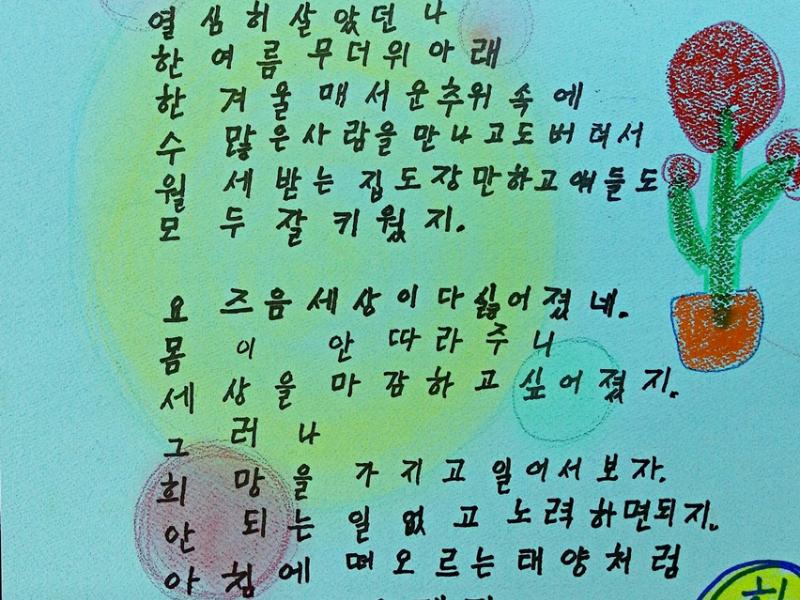 열심히 살았던 나
한 여름 무더위 아래
한 겨울 매서운추위 속에
수 많은사람을 만나고도버텨서
월 세 받는 집도장만하고얘들도
모 두 잘 키웠지.
요 즈음세상이다싫어졌네.
몸 이 안 따라주니
세상을 마감하고싶어졌지.
그 러나
희 망을 가지고 일어서보자.
안 되는 일 없고 노력하면되지.
아 침에 떠오르는태양처럼